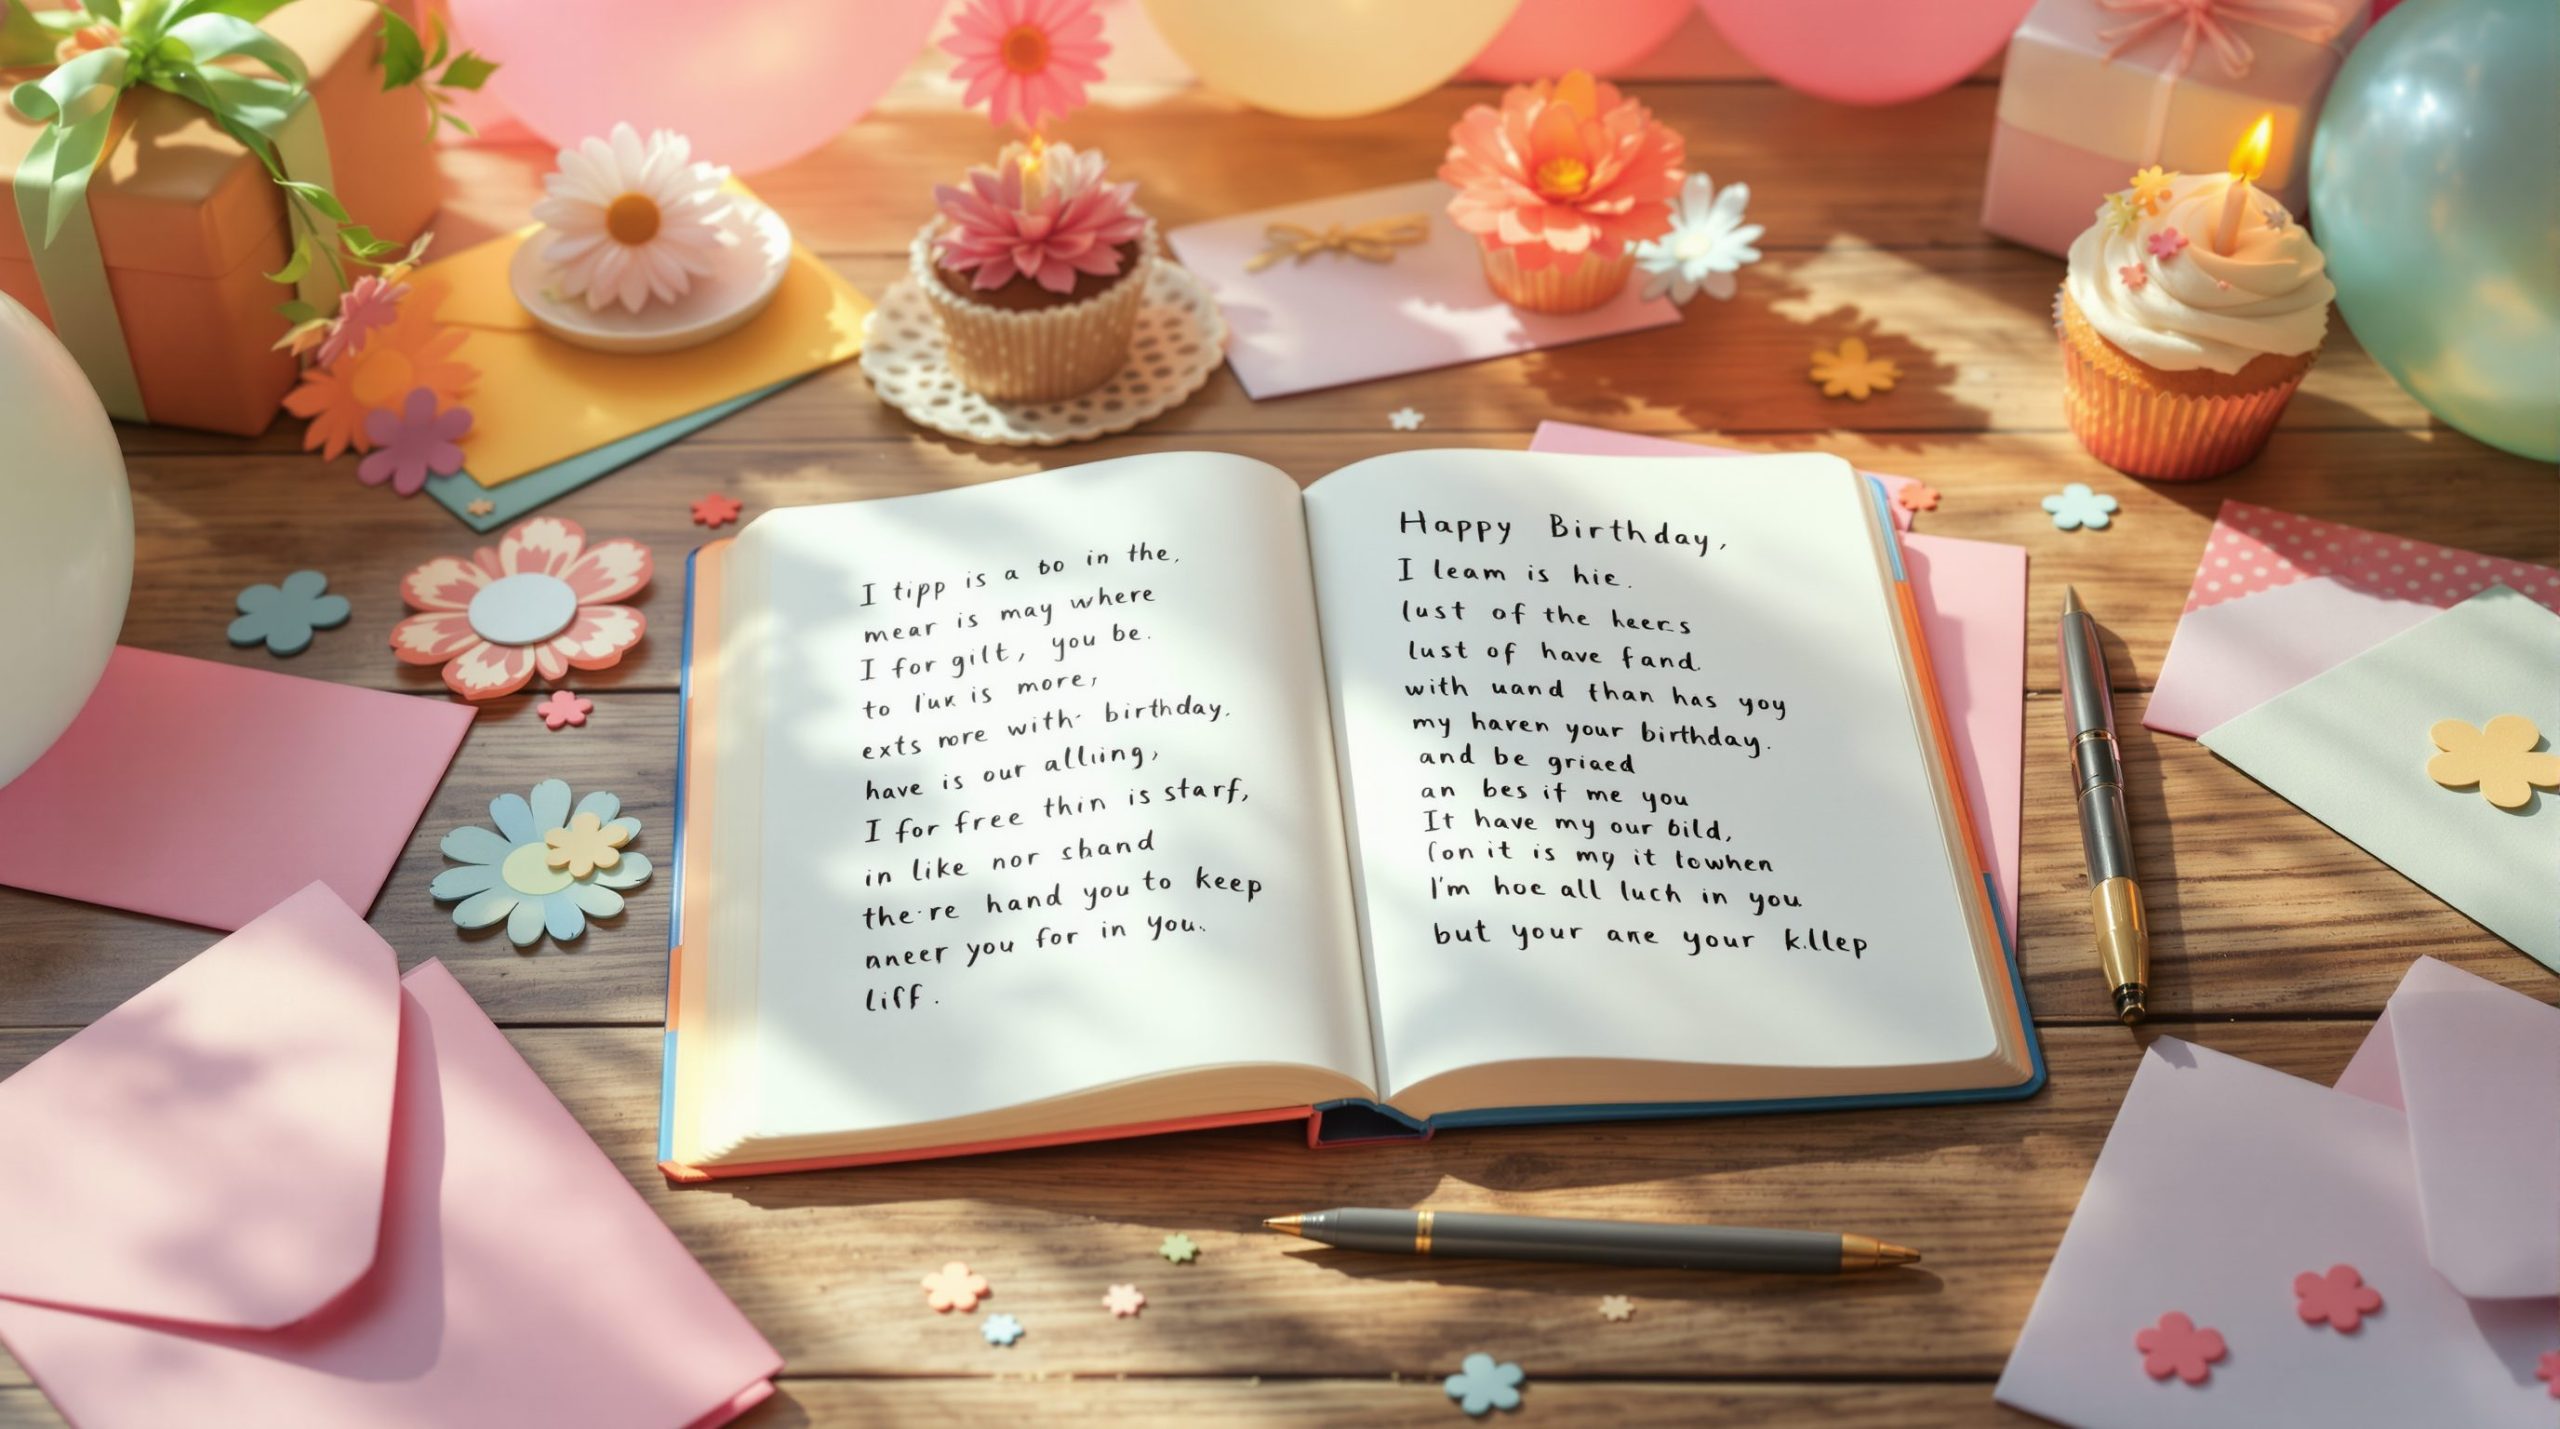 I tipp is a bo in the,
mear is may where
I for gilt, you be.
to l'uk is more,
exts more with· birthday.
have is our alliing,
I for free thin is starf,
in like nor shand
the·re hand you to keep
aneer you for in you.
liff.
Happy Birthday,
I leam is hie.
lust of the heers
lust of have fand.
with uand than has yoy
my haven your birthday.
and be griaed
an bes if me you
It have my our bild,
(on it is my it lowhen
I'm hoe all luch in you
but your ane your k.llep